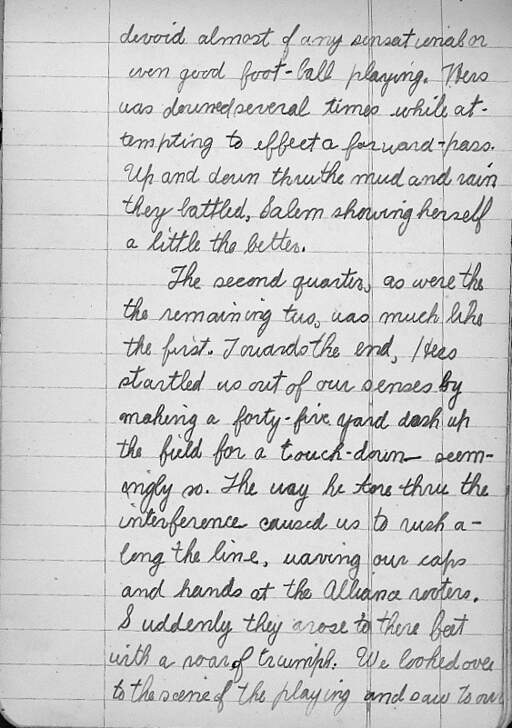 devoid almost of any sensational or
even good foot-ball playing. Hess
was downed several times while at-
tempting to effect a forward-pass.
Up and down thru the mud and rain
they battled, Salem showing herself
a little the better.
The second quarter, as were the
the remaining two, was much like
the first. Towards the end, Hess
startled us out of our senses by
making a forty-five yard dash up
the field for a touch-down seem-
ingly so. The way he tore thru the
interference caused us to rush a-
long the line, waving our caps
and hands at the Alliance rooters.
Suddenly they arose to there feet
with a roar of triumph. We looked over
to the scene of the playing and saw to our